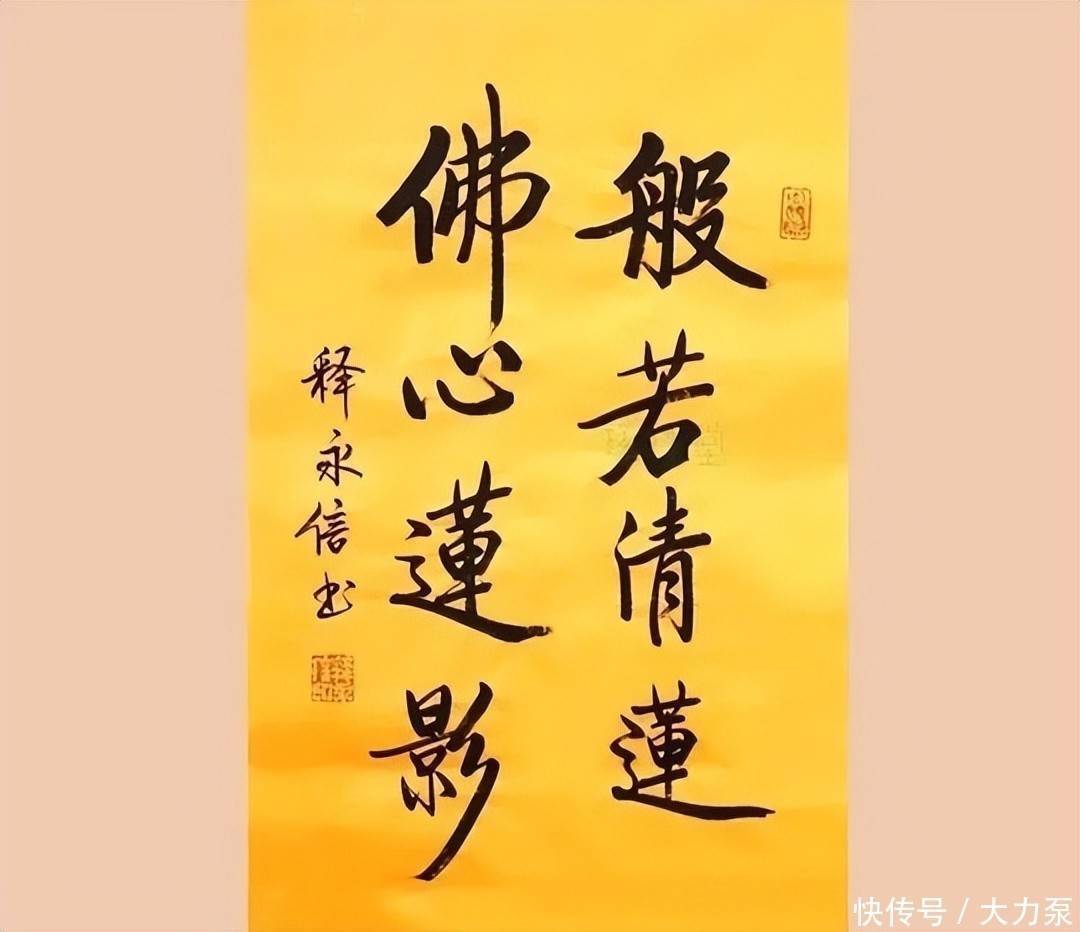 般若清蓮
佛心蓮影
释永信书
快传号/大力泵